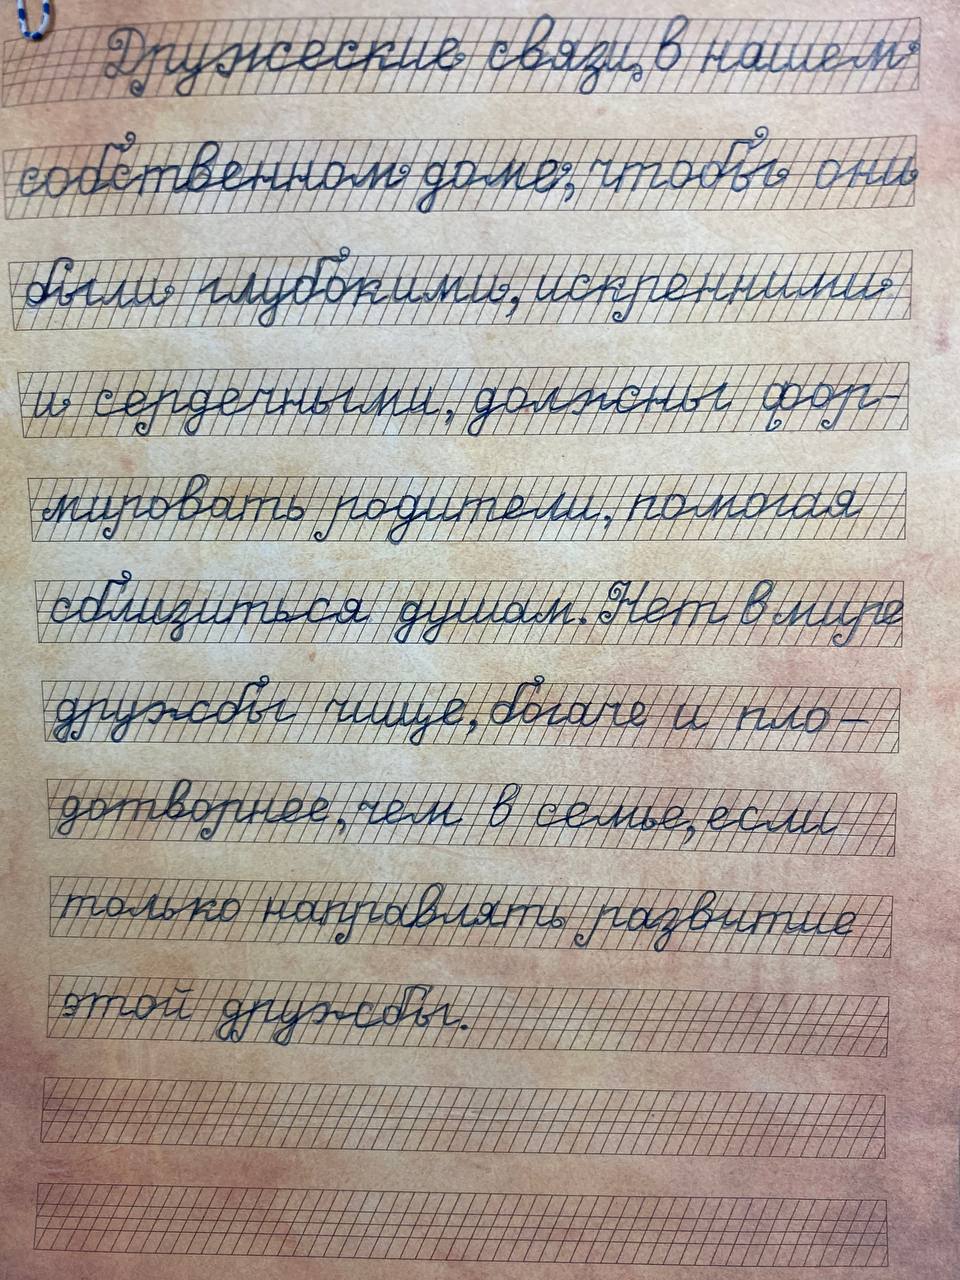 Дружеские связи, в нашем
собственном доме, чтобы они
были глубокими, искренними
и сердечными, должны фор-
мировать родители, помогая
сблизиться душам. Нет в мире
дружбы чище, богаче и пло-
дотворнее, чем в семье, если
только направлять развитие
этой дружбы.